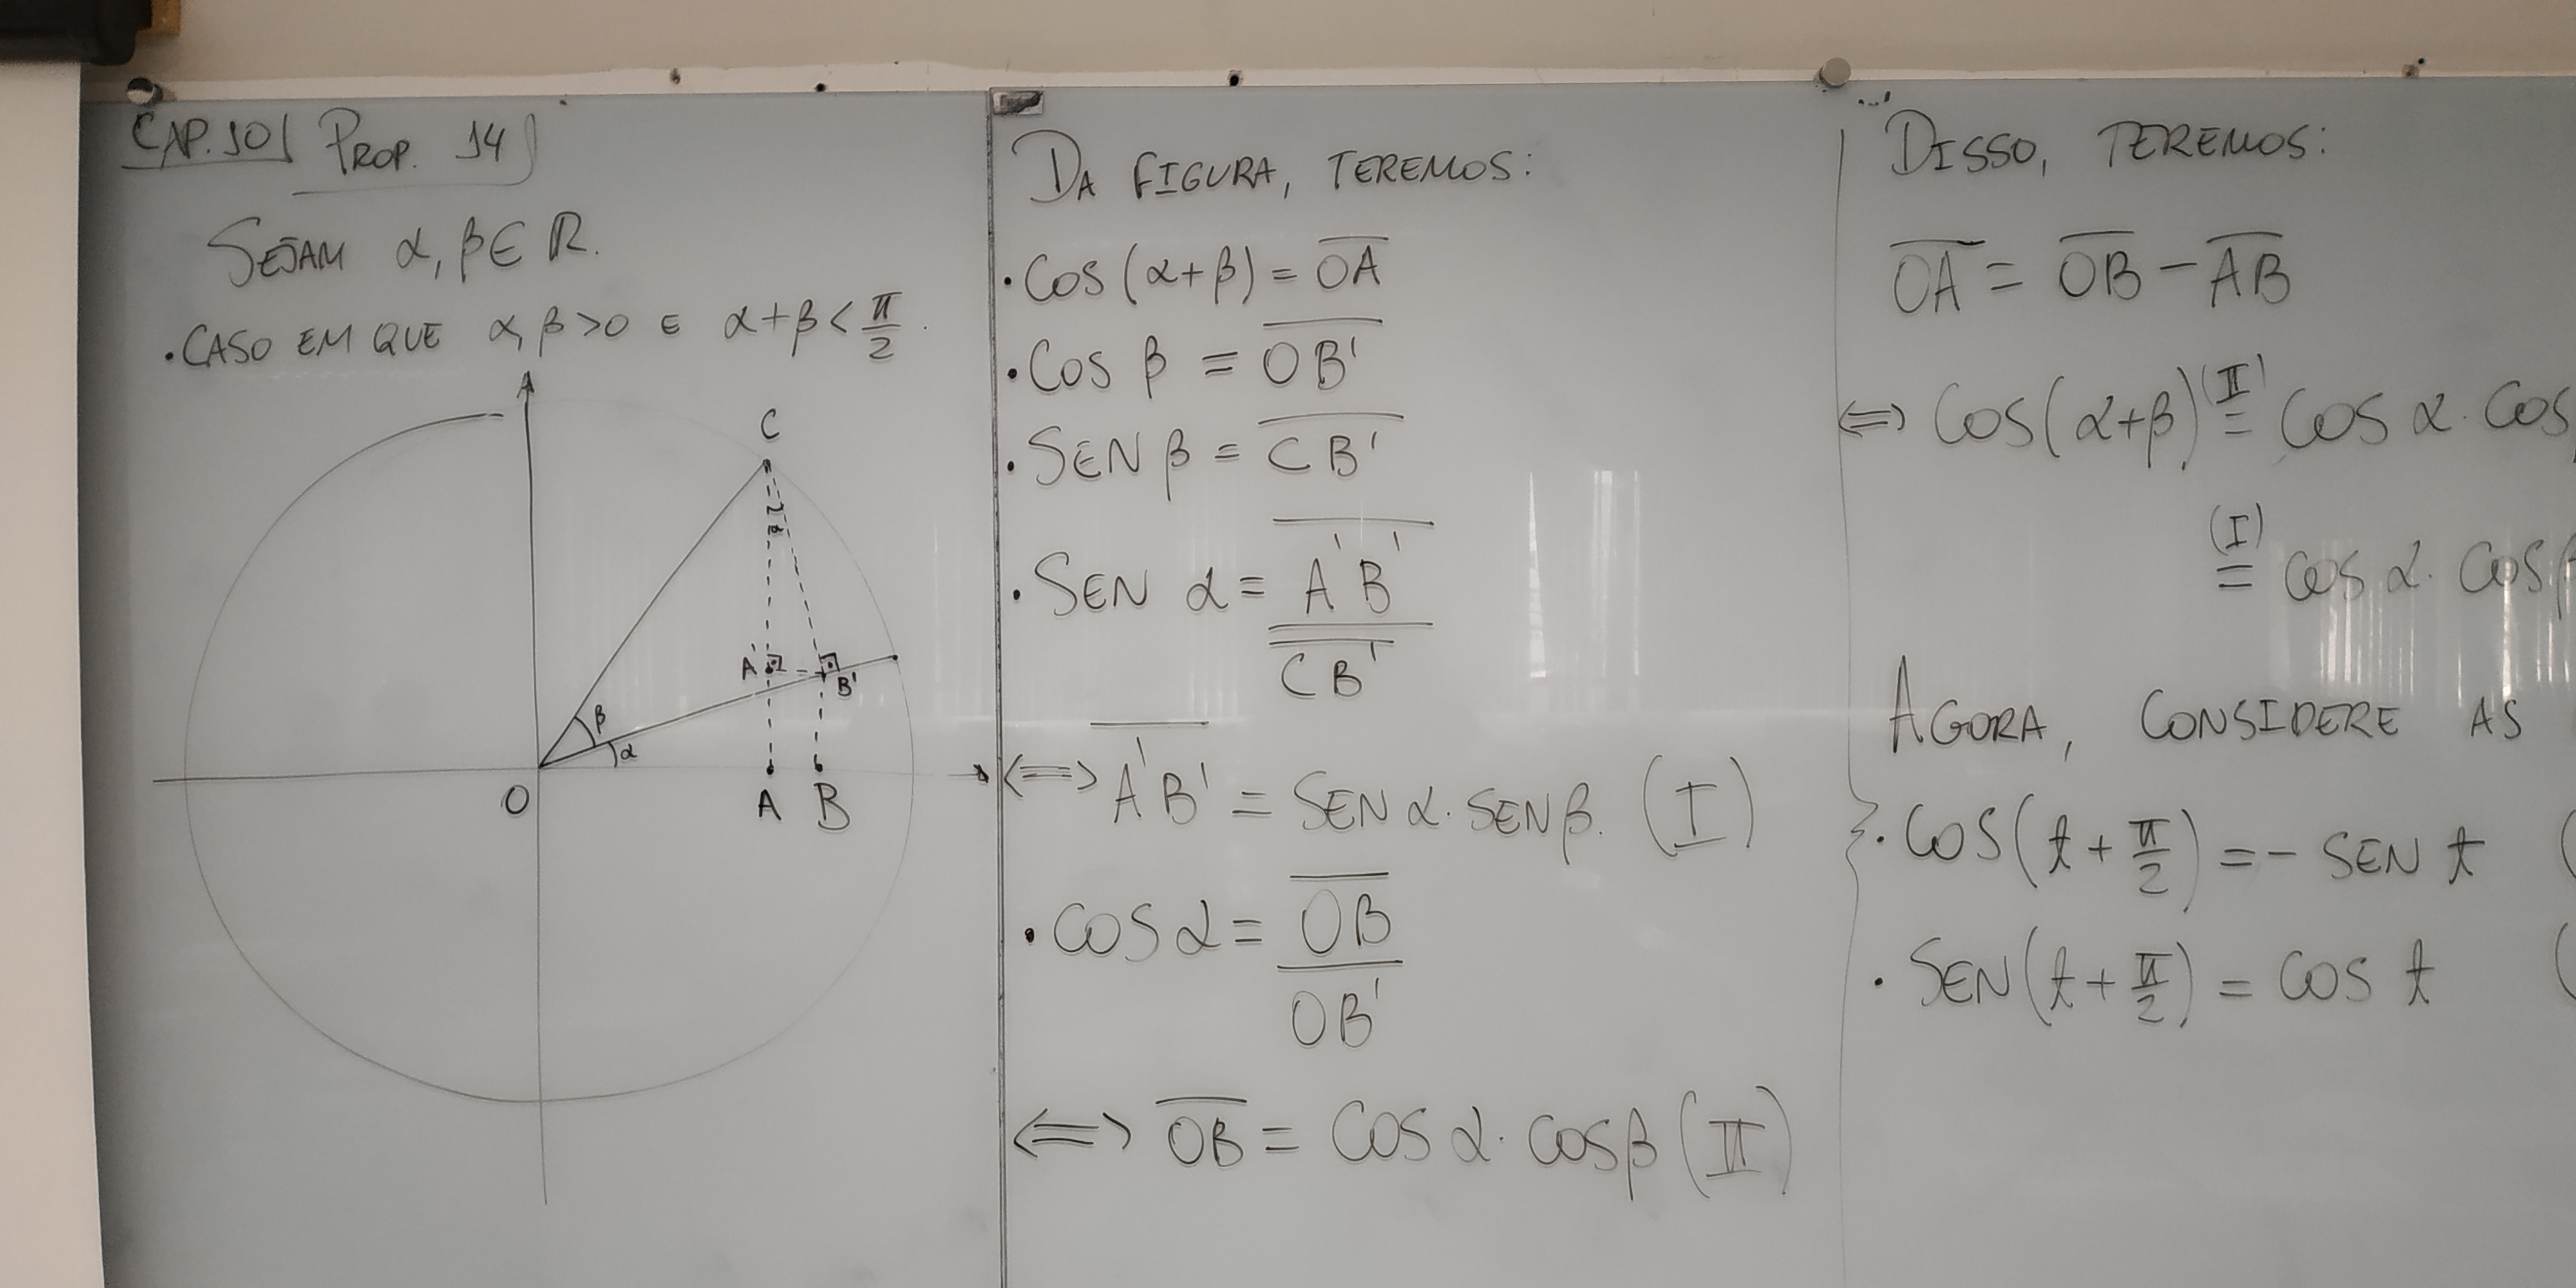 CAP. 10 PROP. 14
SEJAM α, β ∈ ℝ.
• CASO EM QUE α, β > 0 E α + β < π/2.
C
α
A' B'
β
α
O A B
DA FIGURA, TEREMOS:
• COS (α + β) = O̅A̅
• COS β = O̅B̅'̅
• SEN β = C̅B̅'̅
• SEN α = A̅'̅B̅'̅ / C̅B̅'̅
⟺ A̅'̅B̅'̅ = SEN α · SEN β. (I)
• COS α = O̅B̅ / O̅B̅'̅
⟺ O̅B̅ = COS α · COS β (II)
DISSO, TEREMOS:
O̅A̅ = O̅B̅ − A̅B̅
⟺ COS (α+β) (II)= COS α · COS
(I)= COS α · COS β
AGORA, CONSIDERE AS
• COS (t + π/2) = − SEN t (
• SEN (t + π/2) = COS t (